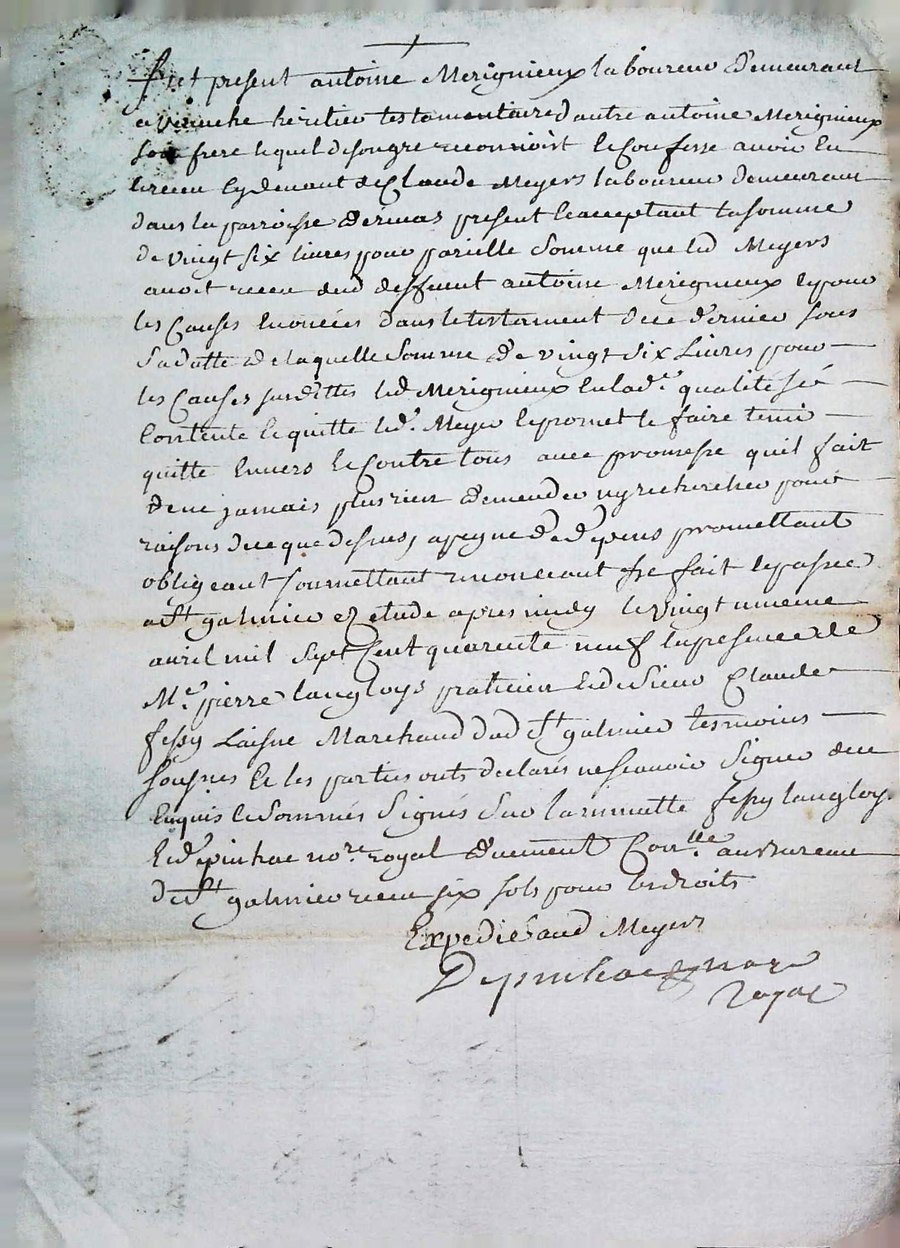 fut present antoine Merignieux laboureur demeurant
a heritier testamentaire d autre antoine Merignieux
son frere lequel desongre reconnoist le Confesse avoir Eu
le receu cydevant de Claude Meyers laboureur demeurant
dans la parroisse present le acceptant la somme
de vingt six livres pour pareille Somme que led Meyers
avoit receu dud deffunt antoine Merignieux le pour
les Causes Enoncées dans le testament de ce dernier sous
sa datte de laquelle Somme de vingt six Livres pour
les Causes susdittes led Merignieux En lad.e qualité sée
Contente le quitte led. Meyer le promet le faire tenir
quitte Envers le Contre tous avec promesse quil fait
de ne jamais plus rien demender ny rechercher pour
raisons de ce que dessus, a peyne de d'epens promettant
obligeant soumettant renonceant fre fait le passé
a St galmier Etude apres midy le vingt unieme
avril mil Sept Cent quarente neuf En presence de
M.e pierre langloys praticien Et de Sieur Claude
fessy Laisne Marchand dud St galmier tesmoins
sousnes Et les parties onts declarés ne scavoir Signer de ce
Enquis le Sommés Signés Sur la minutte fessy langloys
Et depinhac no.re royal duement Con.lle au bureau
de St galmier receu six sols pour les droits
Expedié aud Meyers
Depinhac no.re
Royal